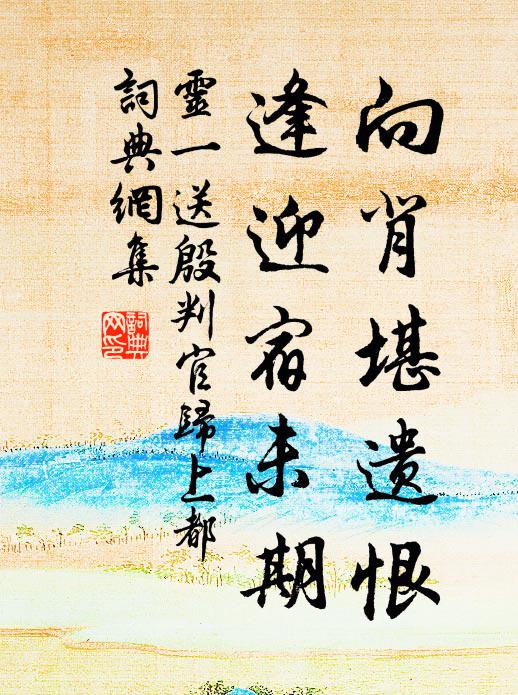 向背堪遺恨
逢迎宿未期
靈一送殷判官歸上都
詞典網集
詞典网印